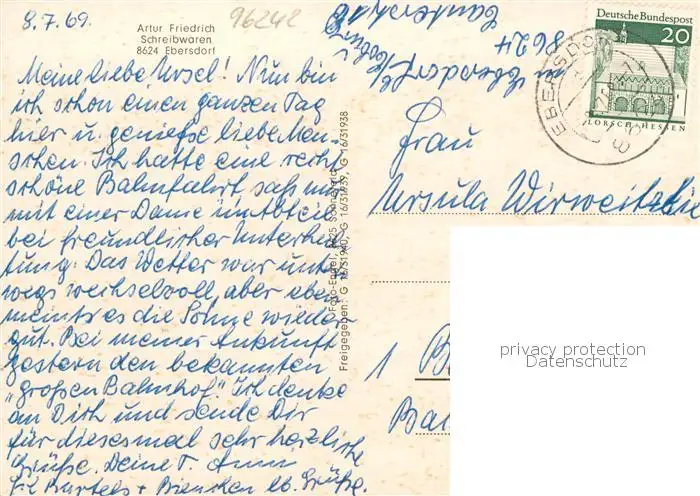 8.7.69.
96242
Artur Friedrich
Schreibwaren
8624 Ebersdorf
Meine liebe Ursel! Nun bin
ich schon einen ganzen Tag
hier u. genieße liebe Men-
schen. Ich hatte eine recht
schöne Bahnfahrt, saß nur
mit einer Dame im Abteil
bei freundlicher Unterhal-
tung. Das Wetter war unter-
wegs wechselvoll aber eben
meint es die Sonne wieder
gut. Bei meiner Ankunft
gestern den bekannten
"großen Bahnhof." Ich denke
an Dich und sende Dir
für diesesmal sehr herzliche
Grüße. Deine T. Anni
Bartels + lb. Grüße.
Foto-Engel, 8625 Sonnefeld
Freigegeben: G 16/31940, G 16/31939, G 16/31938
8624
Ebersdorf
Deutsche Bundespost
20
LORSCH · HESSEN
EBERSDORF
Frau
Ursula Wirweitzki
1 B
Ba
privacy protection
Datenschutz